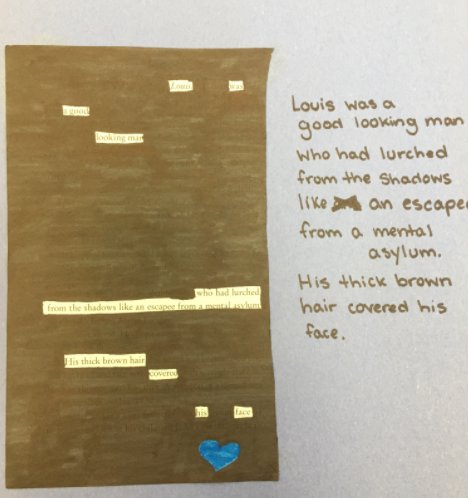 Louis was
a good
looking man
who had lurched
from the shadows like an escapee from a mental asylum
His thick brown hair
covered
his face
Louis was a
good looking man
who had lurched
from the shadows
like an escapee
from a mental
asylum.
His thick brown
hair covered his
face.